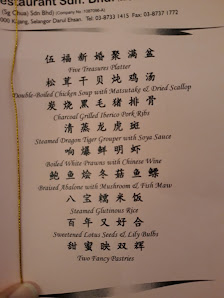 estaurant Sdn. Bhd.
(Sg Chua) Sdn Bhd)
Kajang, Selangor Darul Ehsan. Tel: 03-8733 1415 Fax: 03-8737 1772
伍福新婚聚满盆
Five Treasures Platter
松茸干贝炖鸡汤
Double-Boiled Chicken Soup with Matsutake & Dried Scallop
炭烧黑毛猪排骨
Charcoal Grilled Iberico Pork Ribs
清蒸龙虎斑
Steamed Dragon Tiger Grouper with Soya Sauce
响爆鲜明虾
Boiled White Prawns with Chinese Wine
鲍鱼烩冬菇鱼鳔
Braised Abalone with Mushroom & Fish Maw
八宝糯米饭
Steamed Glutinous Rice
百年又好合
Sweetened Lotus Seeds & Lily Bulbs
甜蜜映双辉
Two Fancy Pastries